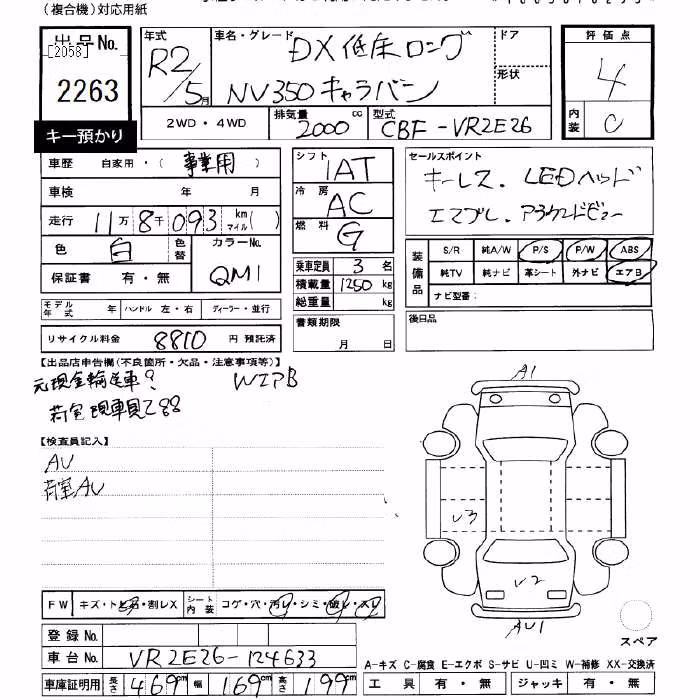 (複合機)対応用紙
出品No.
[2058]
2263
キー預かり
年式 R2/5月
車名・グレード DX 低床ロング
NV350キャラバン
ドア
形状
評価点 4
内装 C
2WD・4WD
排気量 2000 cc
型式 CBF-VR2E26
車歴 自家用・(事業用)
車検 年 月
走行 11万8千093 km マイル( )
色 白 色替 カラーNo. QM1
保証書 有・無
モデル年式 年 ハンドル 左・右 ディーラー・並行
リサイクル料金 8810 円 預託済
シフト IAT
冷房 AC
燃料 G
乗車定員 3 名
積載量 1250 kg
総重量 kg
書類期限
月 日
セールスポイント
キーレス. LEDヘッド
エマブレ. アラウンドビュー
装備品 S/R 純A/W P/S P/W ABS
純TV 純ナビ 革シート 外ナビ エアB
ナビ型番:
後日品
【出品店申告欄(不良箇所・欠品・注意事項等)】
元現金輸送車? WエアB
荷室現車見
【検査員記入】
AU
荷室AU
A1
U3
U2
AU1
FW キズ・トビ石・割レX シート内装 コゲ・穴・汚レ・シミ・破レ・スレ
登録No.
車台No. VR2E26-124633
車庫証明用 長さ 469cm 幅 169cm 高さ 199cm
スペア
A-キズ C-腐食 E-エクボ S-サビ U-凹ミ W-補修 XX-交換済
工具 有・無 ジャッキ 有・無